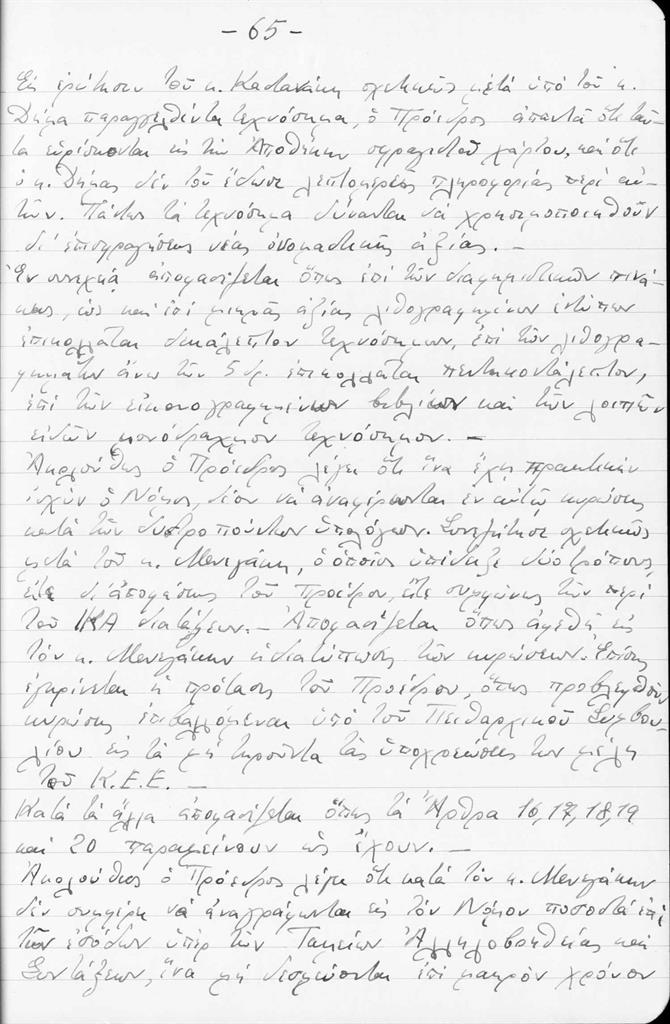 - 65 -
Εἰς ἐρώτησιν τοῦ κ. Καστανάκη σχετικῶς μετὰ ὑπὸ τοῦ κ.
Δήμα παραγγελθέντα τεχνόσημα, ὁ Πρόεδρος ἀπαντᾶ ὅτι ταῦ-
τα εὑρίσκονται εἰς τὴν Ἀποθήκην σφραγιστοῦ χάρτου, καὶ ὅτι
ὁ κ. Δήμας δὲν τοῦ ἔδωσε λεπτομερεῖς πληροφορίας περὶ αὐ-
τῶν. Πάντως τὰ τεχνόσημα δύνανται νὰ χρησιμοποιηθοῦν
δι' ἐπισφραγίσεως νέας ὀνομαστικῆς ἀξίας. -
Ἐν συνεχείᾳ ἀποφασίζεται ὅπως ἐπὶ τῶν διαφημιστικῶν πινά-
κων, ὡς καὶ ἐπὶ μικρᾶς ἀξίας λιθογραφημένων ἐντύπων
ἐπικολλᾶται δεκάλεπτον τεχνόσημον, ἐπὶ τῶν λιθογρα-
φημάτων ἄνω τῶν 5 δρ. ἐπικολλᾶται πεντηκοντάλεπτον,
ἐπὶ τῶν εἰκονογραφημένων βιβλίων καὶ τῶν λοιπῶν
εἰδῶν μονόδραχμον τεχνόσημον. -
Ἀκολούθως ὁ Πρόεδρος λέγει ὅτι ἵνα ἔχῃ πρακτικὴν
ἰσχὺν ὁ Νόμος, δέον νὰ ἀναφέρωνται ἐν αὐτῷ κυρώσεις
κατὰ τῶν δυστροπούντων ὑπολόγων. Συνεζήτησε σχετικῶς
μετὰ τοῦ κ. Μενεγάκη, ὁ ὁποῖος ὑπέδειξε δύο τρόπους,
εἴτε δι' ἀποφάσεως τοῦ Προέδρου, εἴτε συμφώνως τῶν περὶ
τοῦ ΙΚΑ διατάξεων. - Ἀποφασίζεται ὅπως ἀφεθῇ εἰς
τὸν κ. Μενεγάκην ἡ διατύπωσις τῶν κυρώσεων. Ἐπίσης
ἐγκρίνεται ἡ πρότασις τοῦ Προέδρου, ὅπως προβλεφθοῦν
κυρώσεις ἐπιβαλλόμεναι ὑπὸ τοῦ Πειθαρχικοῦ Συμβου-
λίου εἰς τὰ μὴ τηροῦντα τὰς ὑποχρεώσεις των μέλη
τοῦ Κ.Ε.Ε. -
Κατὰ τὰ ἄλλα ἀποφασίζεται ὅπως τὰ Ἄρθρα 16, 17, 18, 19
καὶ 20 παραμείνουν ὡς ἔχουν. -
Ἀκολούθως ὁ Πρόεδρος λέγει ὅτι κατὰ τὸν κ. Μενεγάκην
δὲν συμφέρει νὰ ἀναγράφωνται εἰς τὸν Νόμον ποσοστὰ ἐπὶ
τῶν ἐσόδων ὑπὲρ τῶν Ταμείων Ἀλληλοβοηθείας καὶ
Συντάξεων, ἵνα μὴ δεσμεύονται ἐπὶ μακρὸν χρόνον